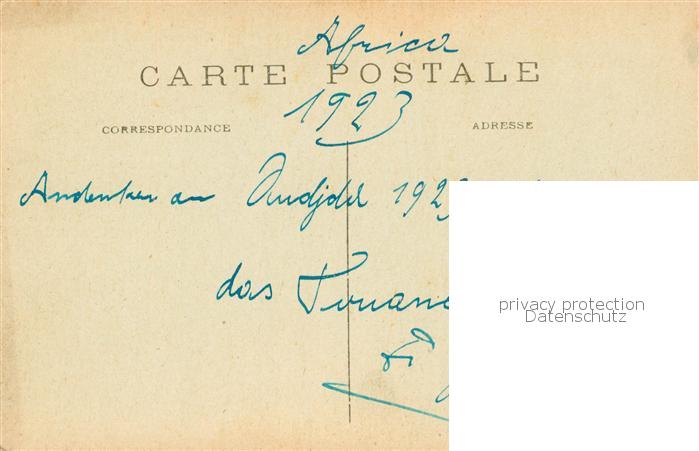 Africa
CARTE POSTALE
1923
CORRESPONDANCE
ADRESSE
Andenken an Oudjda 192
das
privacy protection
Datenschutz